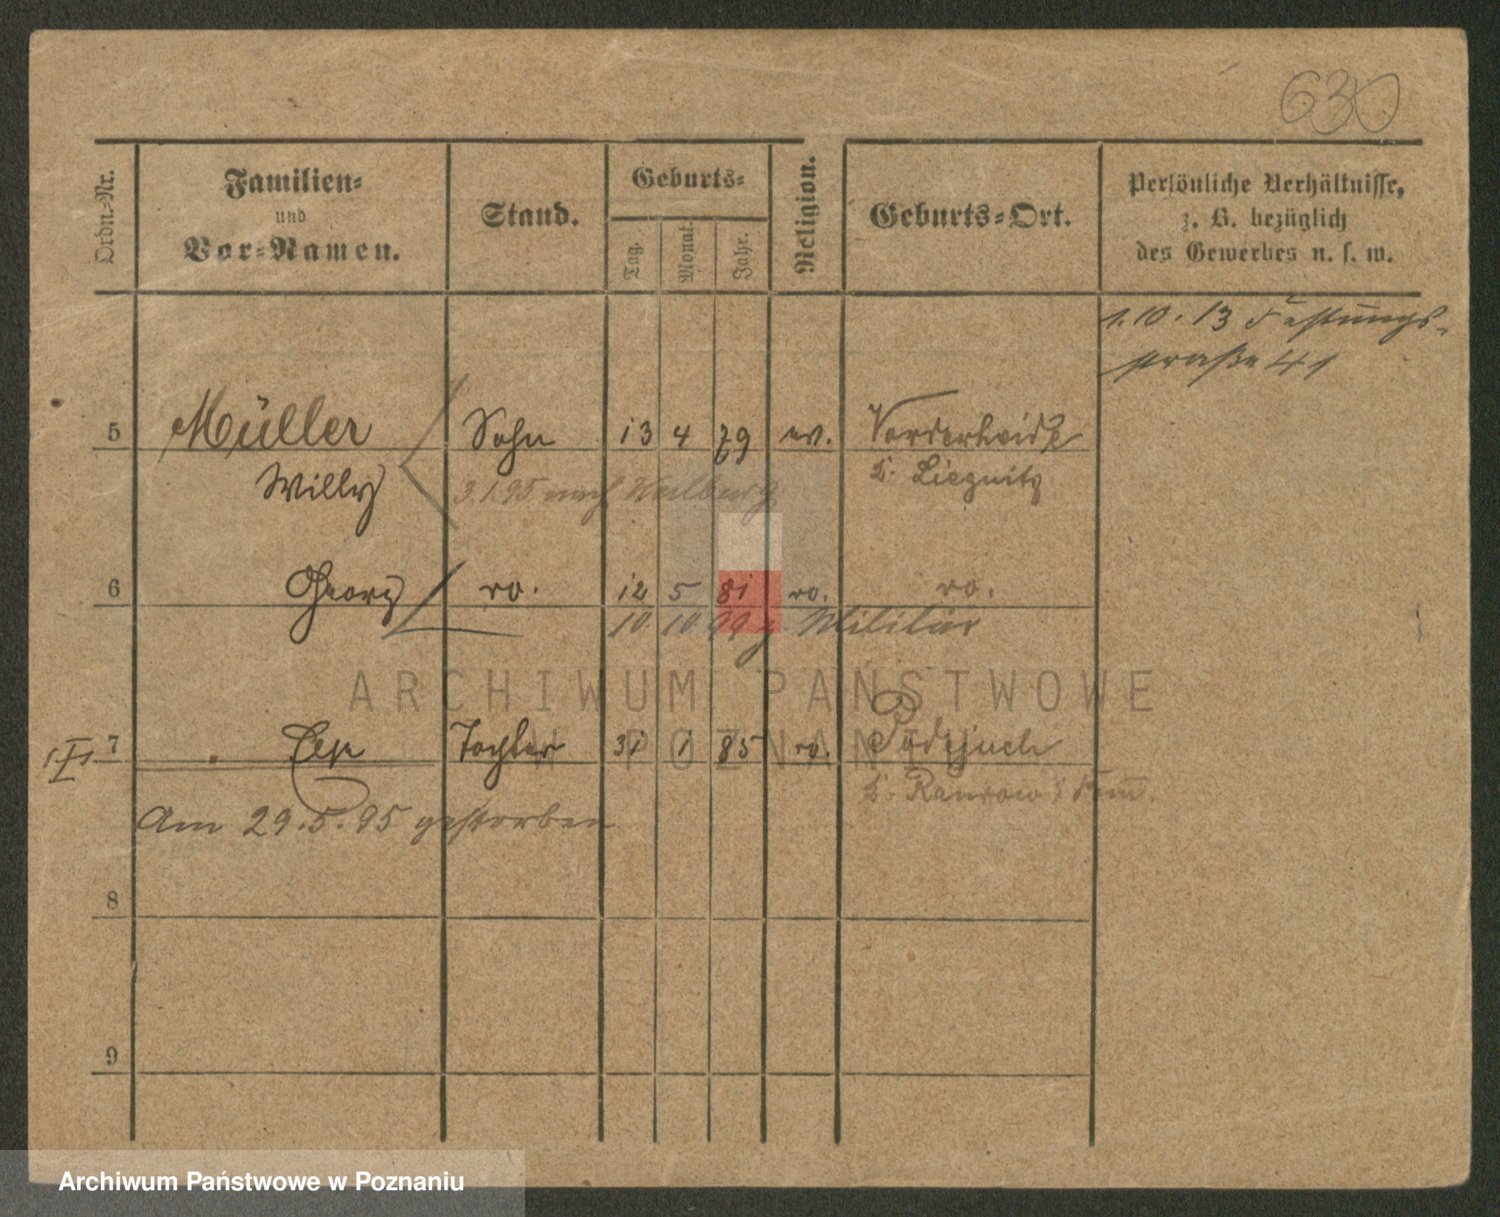 630
Ordn.-Nr.
Familien-
und
Vor-Namen.
Stand.
Geburts-
Tag.
Monat.
Jahr.
Religion.
Geburts-Ort.
Persönliche Verhältnisse,
z. B. bezüglich
des Gewerbes u. s. w.
1.10.13 Festungs-
straße 41
5 Müller Sohn 13 4 79 ev. Vorderheide
Willy 3.1.95 nach K. Liegnitz
6 Georg 12 5 81
10 10 99 z. Militär
7 Else Tochter 31 1 85 Podejuch
K. Randow
Am 29.5.95 gestorben
8
9
ARCHIWUM PAŃSTWOWE
W POZNANIU
Archiwum Państwowe w Poznaniu